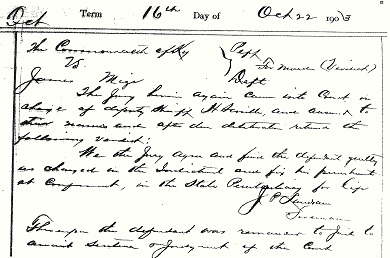 Oct Term 16th Day of Oct 22 1903
The Commonwealth of Ky Peff
Vs For Murder (Verdict)
James Mize Deft
The Jury having again Came into Court in
charge of deputy Shff H and answered to
their names and after due deliberation return the
following verdict:
We the Jury agree and find the defendant guilty
as charged in the Indictment and fix his punishment
at Confinement, in the State Penitentiary for life
J P
Foreman
Thereupon the defendant was remanded to Jail to
await sentence & Judgment of the Court